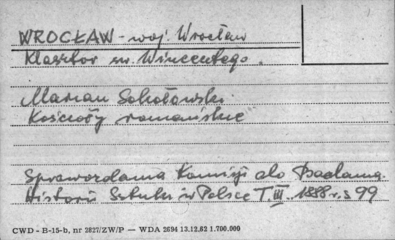 WROCŁAW - woj. Wrocław
Klasztor św. Wincentego.
Marian Sokołowski
Kościoły romańskie
Sprawozdania Komisji do Badania
Historii Sztuki w Polsce T. III. 1888 r. s 99
CWD - B-15-b, nr 2827/ZW/P — WDA 2694 13.12.62 1.700.000